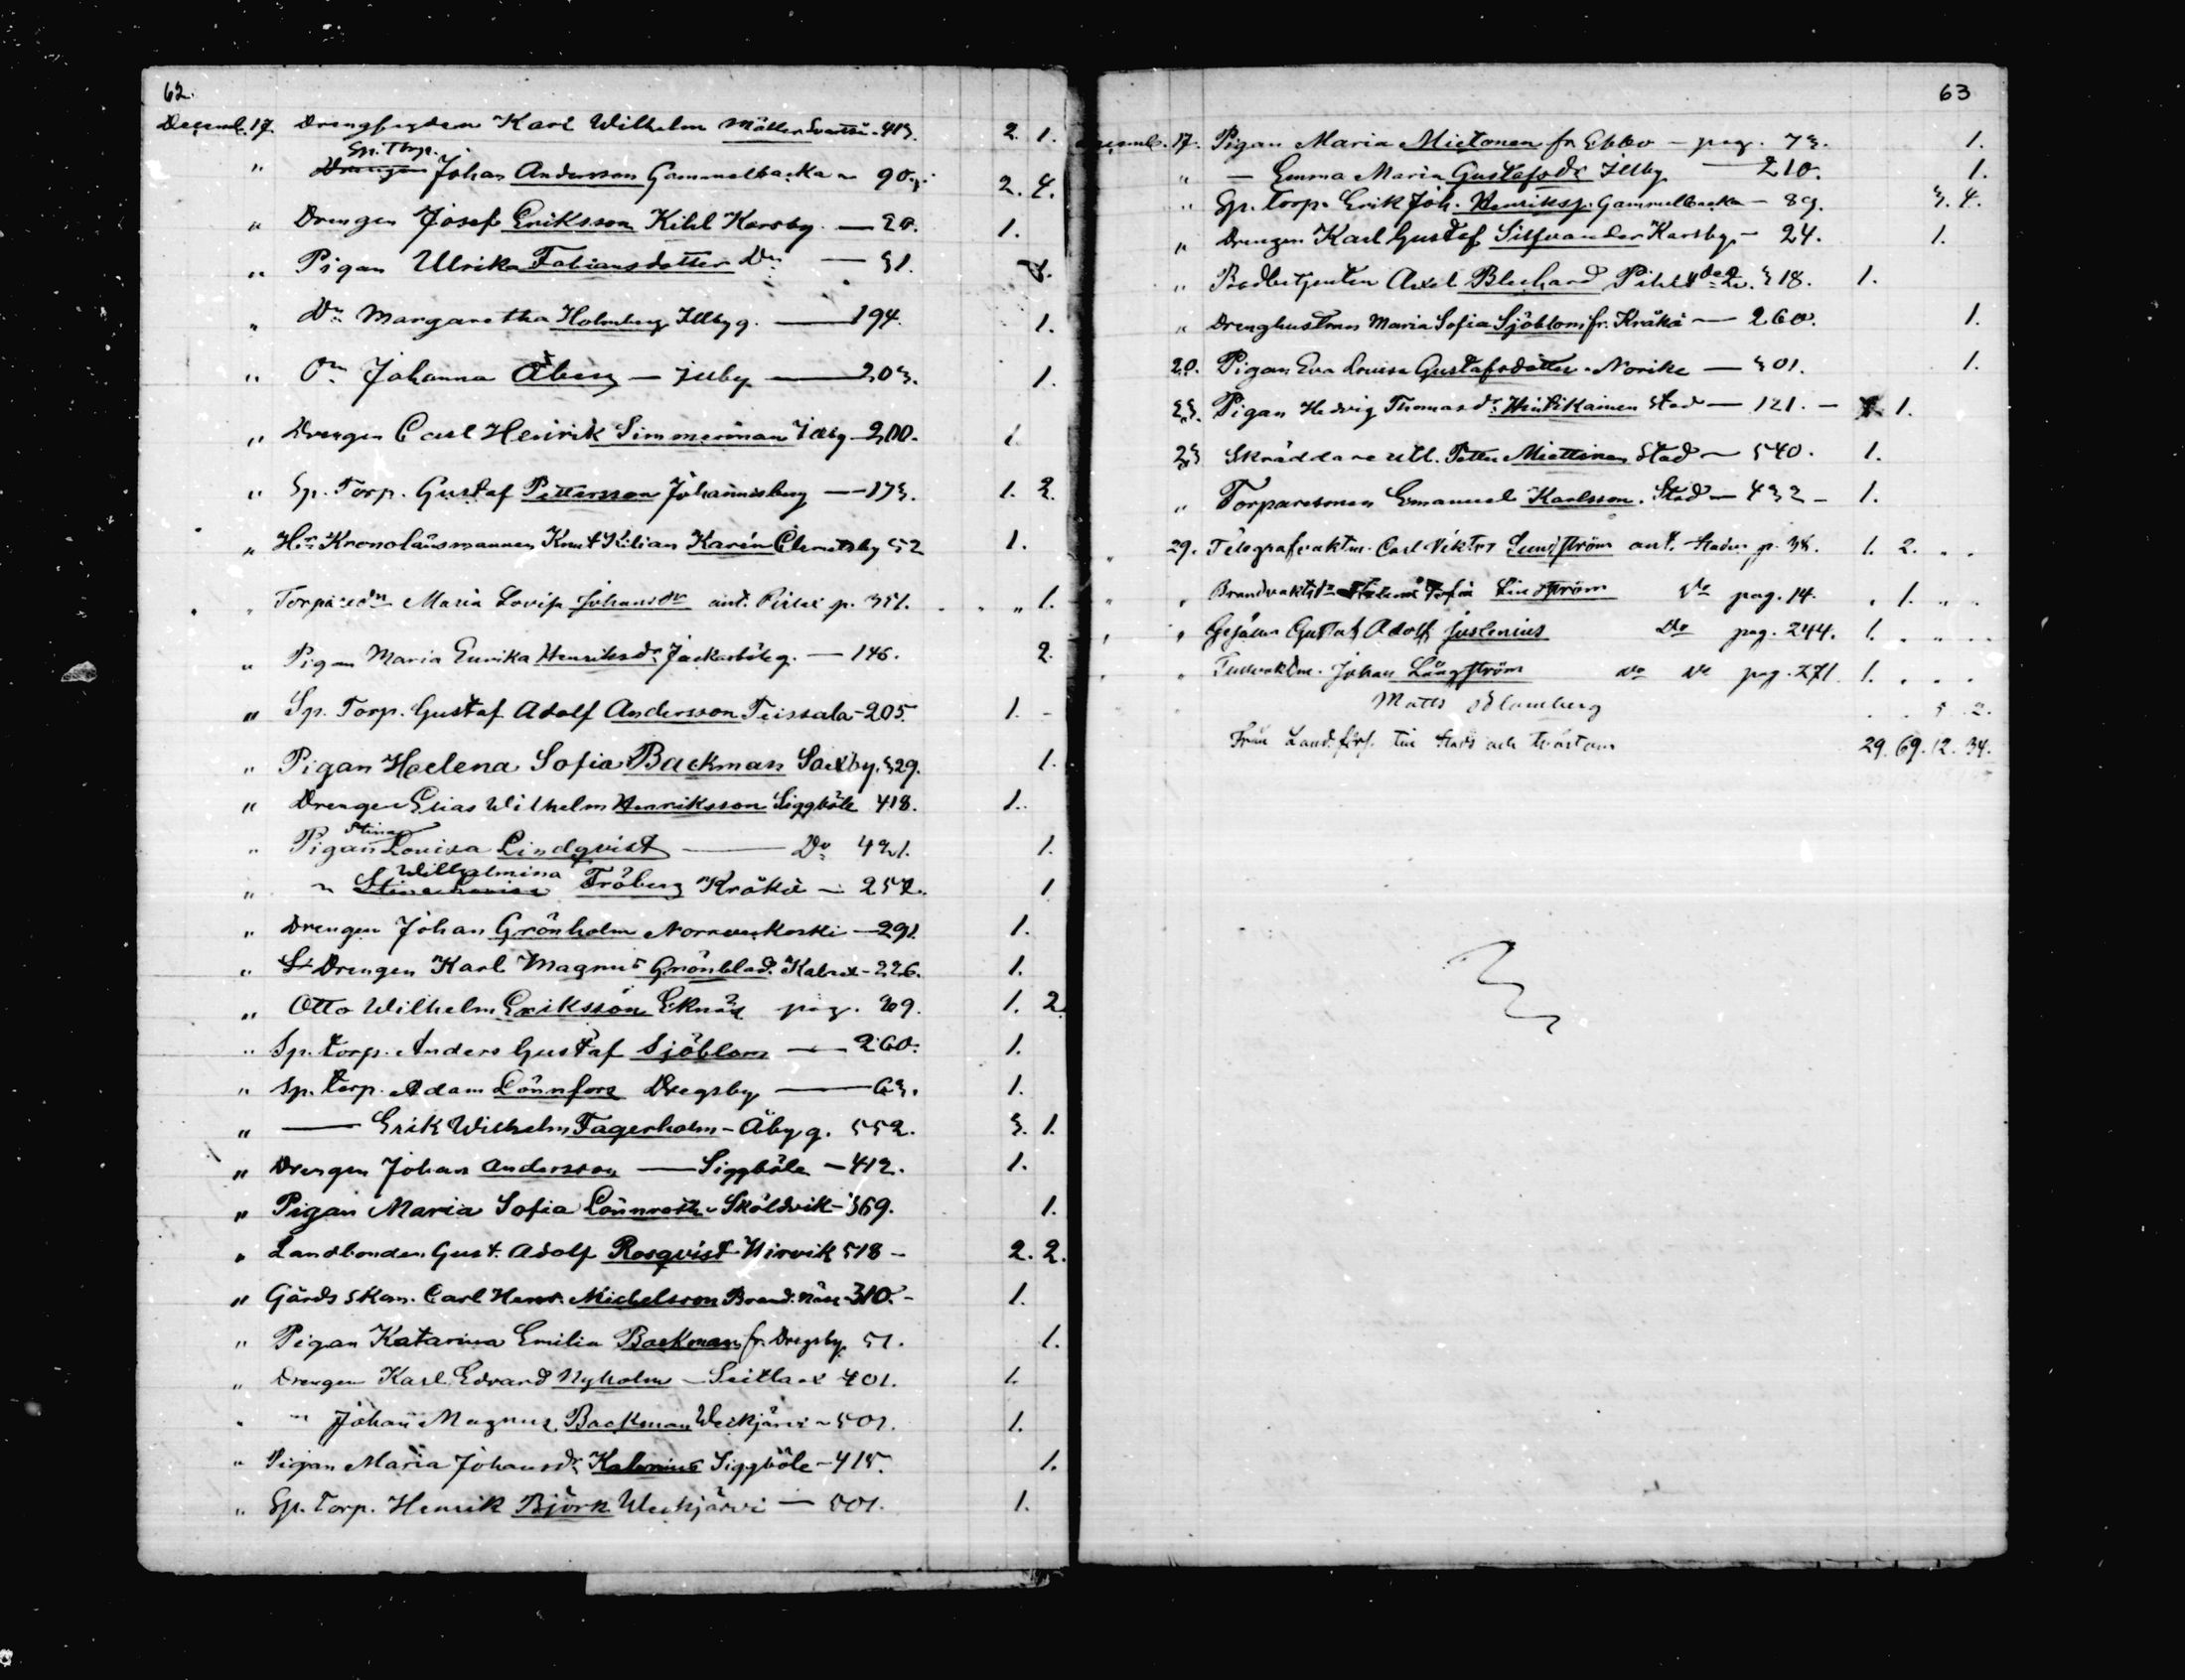 62.
Decemb. 17. Drengfogden Karl Wilhelm Möller Svartså - 413. 2. 1.
Sp. Torp.
" Drengen Johan Andersson Gammelbacka - 90. 2. 4.
" Drengen Josef Eriksson Kihl Karsby - 20. 1.
" Pigan Ulrika Fabiansdotter Do - 31. 1.
" Do Margaretha Holmberg Illby g. - 194. 1.
" Do Johanna Åberg - Illby - 203. 1.
" Drengen Carl Henrik Simmerman Illby - 200. 1.
" Sp. Torp. Gustaf Pettersson Johannisberg - 173. 1. 2.
" Hr Kronolänsmannen Knut Kilian Karén Clemetsby 52 1.
" Maria Lovisa Johansdr ant. p. 351. " 1.
" Pigan Maria Eurika Henriksdr Jackarböle g. - 146. 2.
" Sp. Torp. Gustaf Adolf Andersson Teissala - 205. 1. -
" Pigan Helena Sofia Backman Saxby. 329. 1.
" Drengen Elias Wilhelm Henriksson Siggböle 418. 1.
Stina
" Pigan Lovisa Lindqvist - Do 421. 1.
Wilhelmina
" " Stina Lovisa Fröberg Kråkö - 252. 1
" Drengen Johan Grönholm Norrveckoski - 291. 1.
" Drengen Karl Magnus Grönblad. Kalax - 226. 1.
" Otto Wilhelm Eriksson Eknäs pag. 309. 1. 2.
" Sp. torp. Anders Gustaf Sjöblom - 260. 1.
" Sp. torp. Adam Lönnfors Drägsby - 63. 1.
" - Erik Wilhelm Fagerholm - Åby g. 552. 3. 1.
" Drengen Johan Andersson - Siggböle - 412. 1.
" Pigan Maria Sofia Lönnroth - Sköldvik - 369. 1.
" Landbonden Gust. Adolf Rosqvist Virvik 518 - 2. 2.
" Gårds Skom. Carl Henr. Michelsson Brand. näse - 310. - 1.
" Pigan Katarina Emilia Backman fr. Drägsby 51. 1.
" Drengen Karl Edvard Nyholm - Seitlax 401. 1.
" " Johan Magnus Backman Weckjärvi - 501. 1.
" Pigan Maria Johansdr Kalenius Siggböle - 415. 1.
" Sp. Torp. Henrik Björk Weckjärvi - 501. 1.
63
Decemb. 17. Pigan Maria Mietonen fr. Ebbo - pag. 73. 1.
" - Emma Maria Gustafsdr Illby - 210. 1.
" Sp. torp. Erik Joh. Henrikss. Gammelbacka - 89. 3. 4.
" Drengen Karl Gustaf Silfvander Karsby - 24. 1.
" Axel Blechard 318. 1.
" Drenghustrun Maria Sofia Sjöblom fr. Kråkö - 260. 1.
20. Pigan Eva Lovisa Gustafsdotter - Norike - 301. 1.
23. Pigan Hedvig Thomasdr Hintikainen Stad - 121. - 1.
23 Skräddare utl. Petter Miettinen Stad - 540. 1.
" Torparesonen Emanuel Karlsson. Stad - 432 - 1.
29. Telegrafvaktm. Carl Viktor Lundström ant. Staden p. 38. 1. 2. . .
" Helena Sofia Lindström Do pag. 14. . 1. " "
" Gesällen Gustaf Adolf Juslenius Do pag. 244. 1. . " . .
" Johan Långström do Do pag. 271. 1. . . .
Matts Blomberg . . 5. 2.
Från Landsförs. till Stads och tvärtom 29. 69. 12. 34.